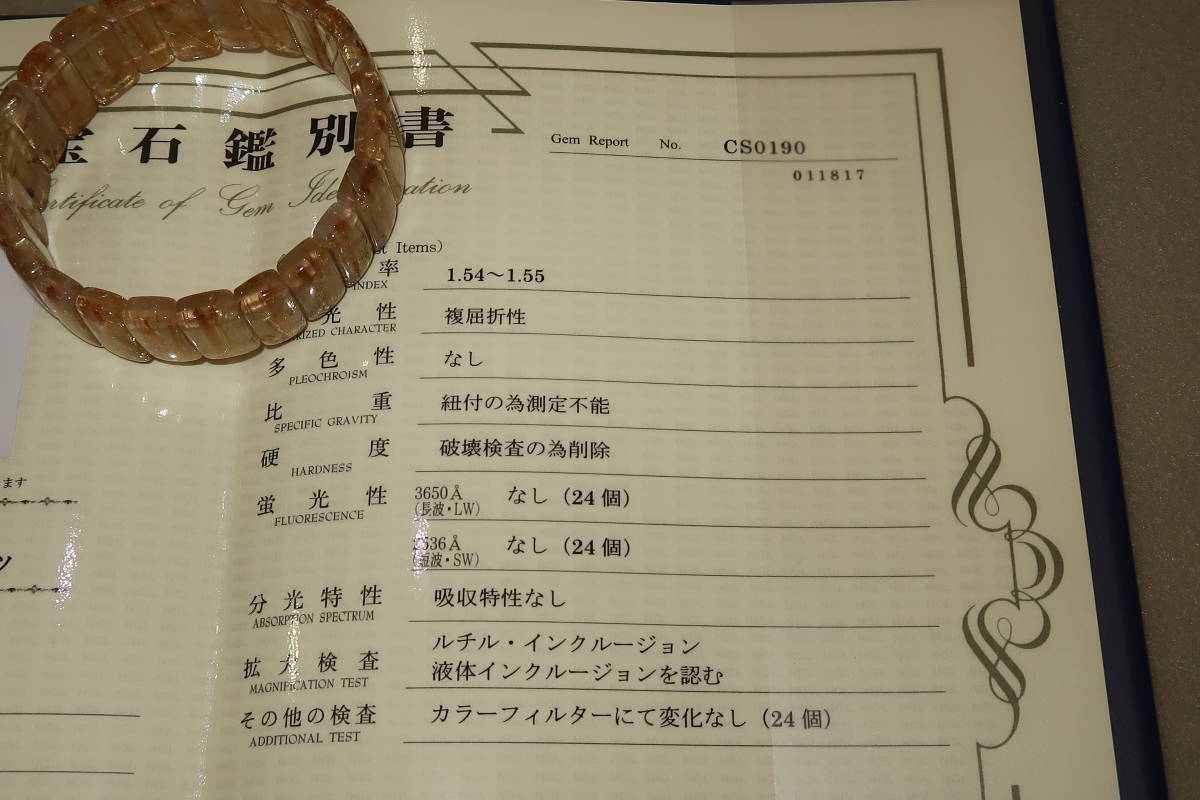 石鑑別書
Gem Report No. CS0190
of Gem
011817
Items)
率 1.54～1.55
INDEX
光性 複屈折性
CHARACTER
多色性 なし
PLEOCHROISM
比重 紐付の為測定不能
SPECIFIC GRAVITY
硬度 破壊検査の為削除
HARDNESS
ます
蛍光性 3650Å なし（24個）
FLUORESCENCE (長波・LW)
536Å なし（24個）
(短波・SW)
ツ
分光特性 吸収特性なし
ABSORPTION SPECTRUM
ルチル・インクルージョン
拡大検査 液体インクルージョンを認む
MAGNIFICATION TEST
その他の検査 カラーフィルターにて変化なし（24個）
ADDITIONAL TEST